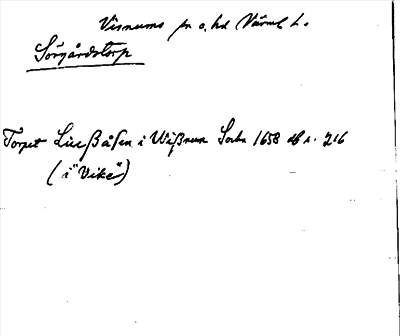 Visnums sn o. hd Värml. l.
Sörgårdstorp
Torpet Lüeßåsen i Wißnum Sochn 1658 db s. 216
(i "Vike")